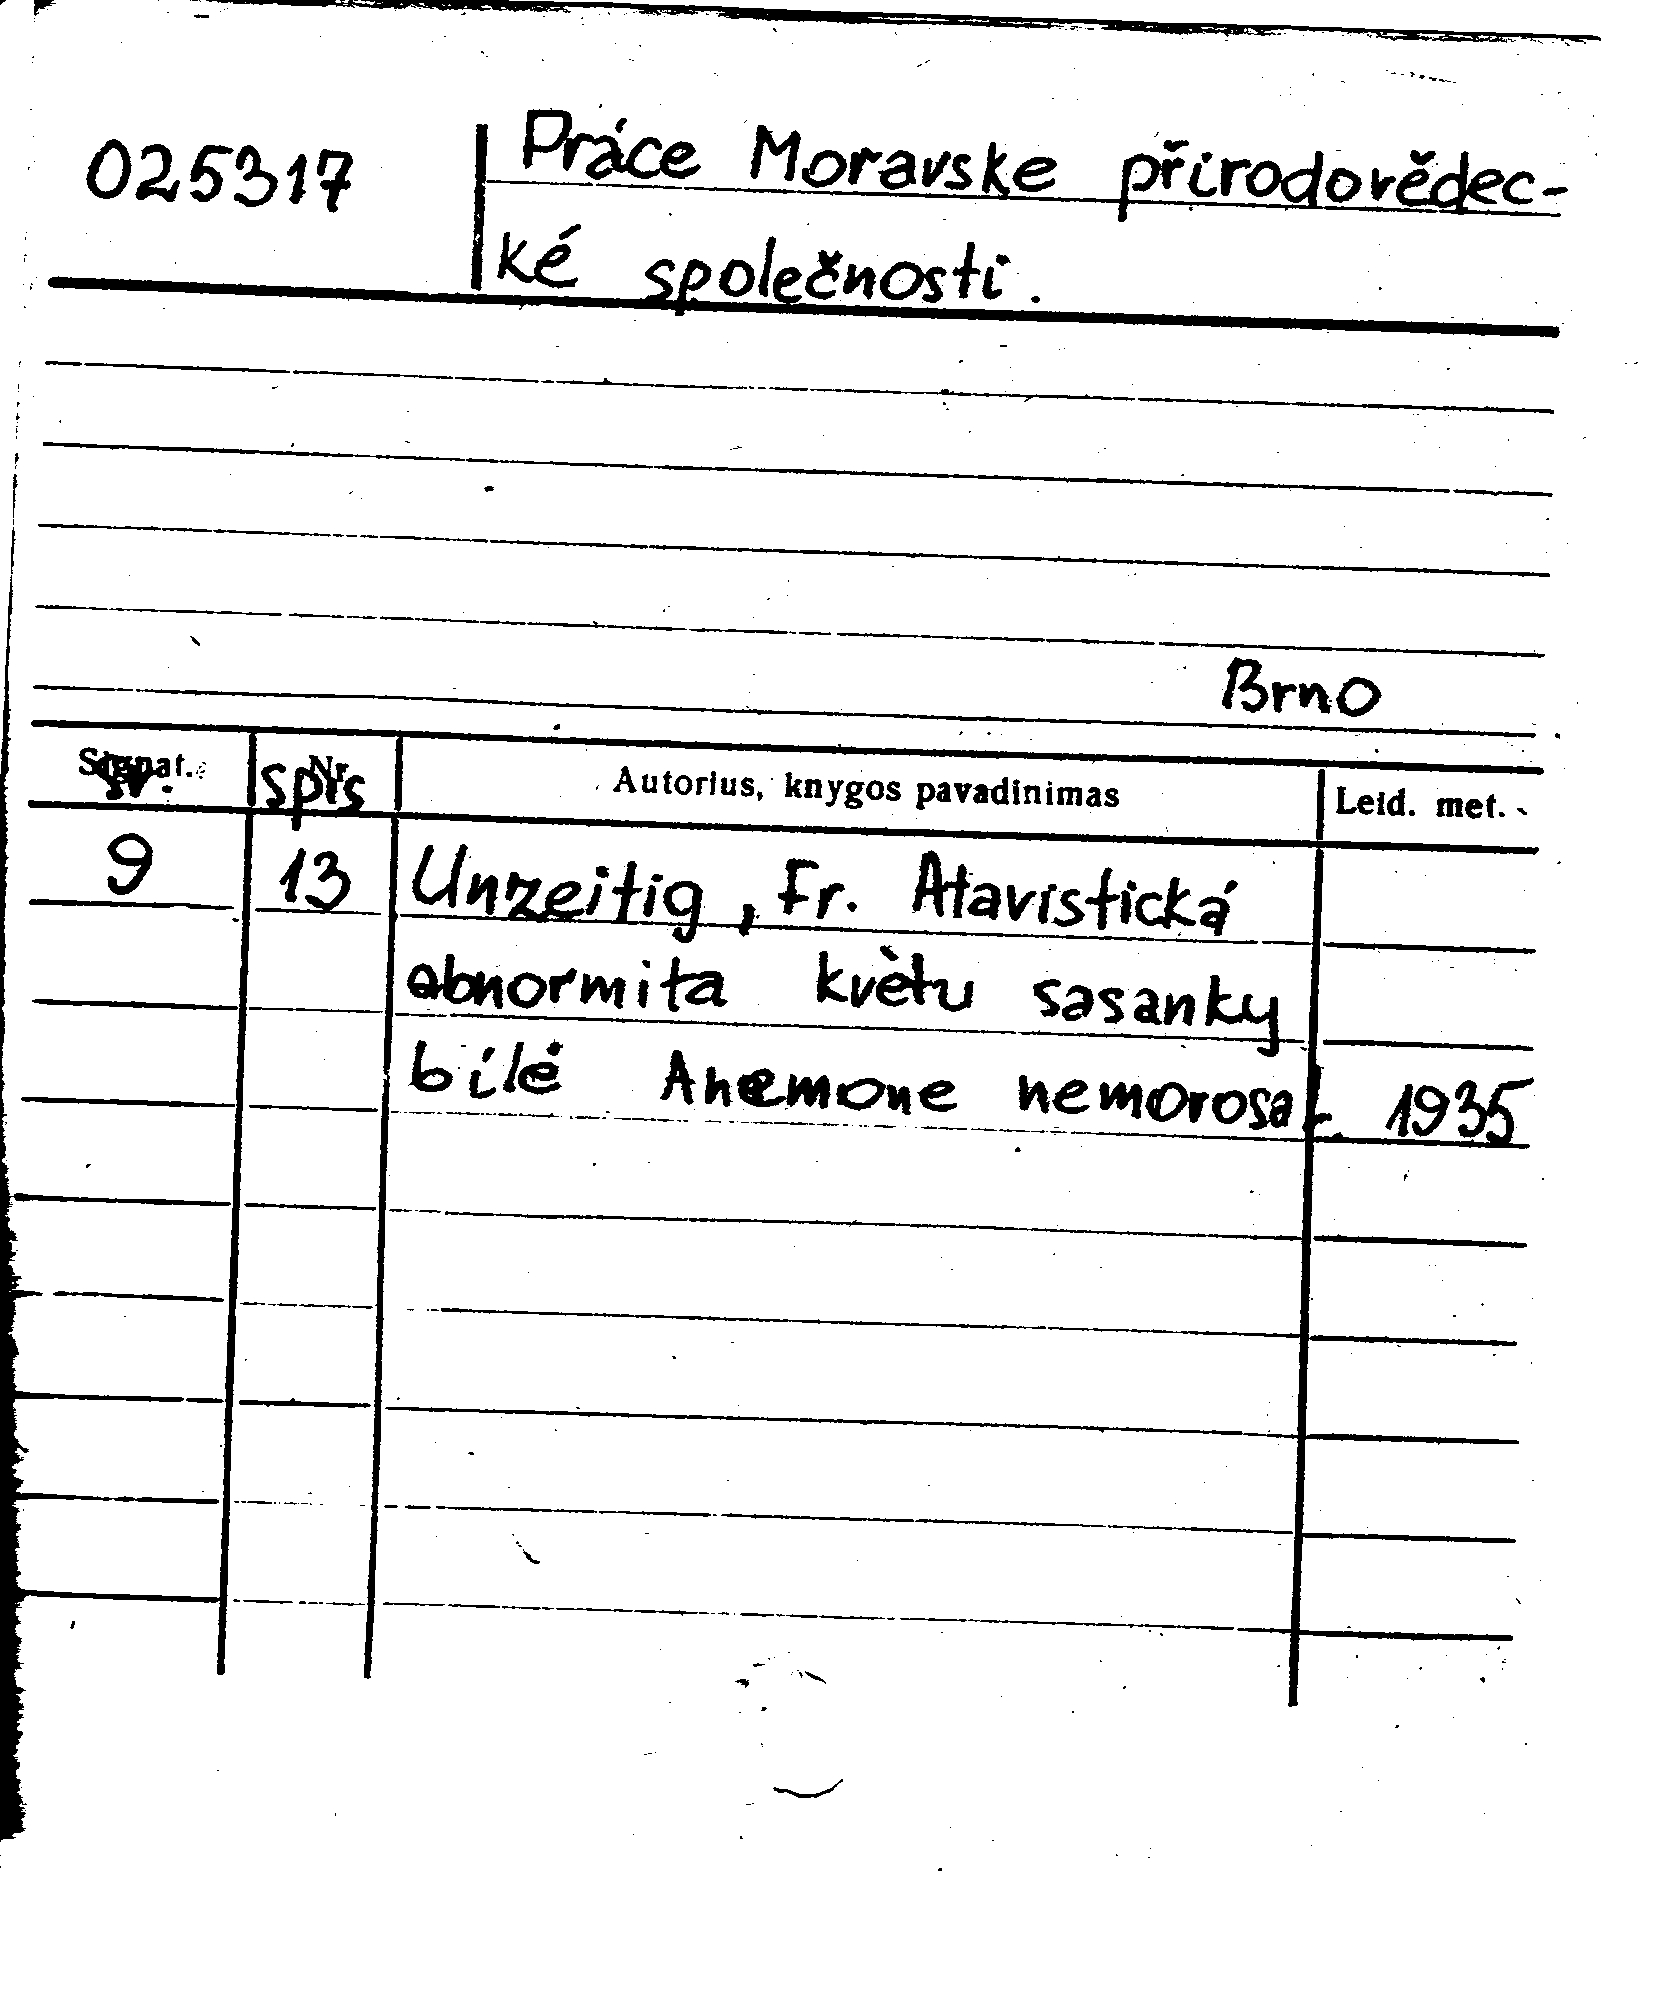 025317 Práce Moravske přírodovědec-
ké společnosti.
Brno
Signat. Nr. Autorius, knygos pavadinimas Leid. met.
sv. sprs
9 13 Unzeitig, Fr. Atavistická
abnormita květu sasanky
bílé Anemone nemorosa L. 1935